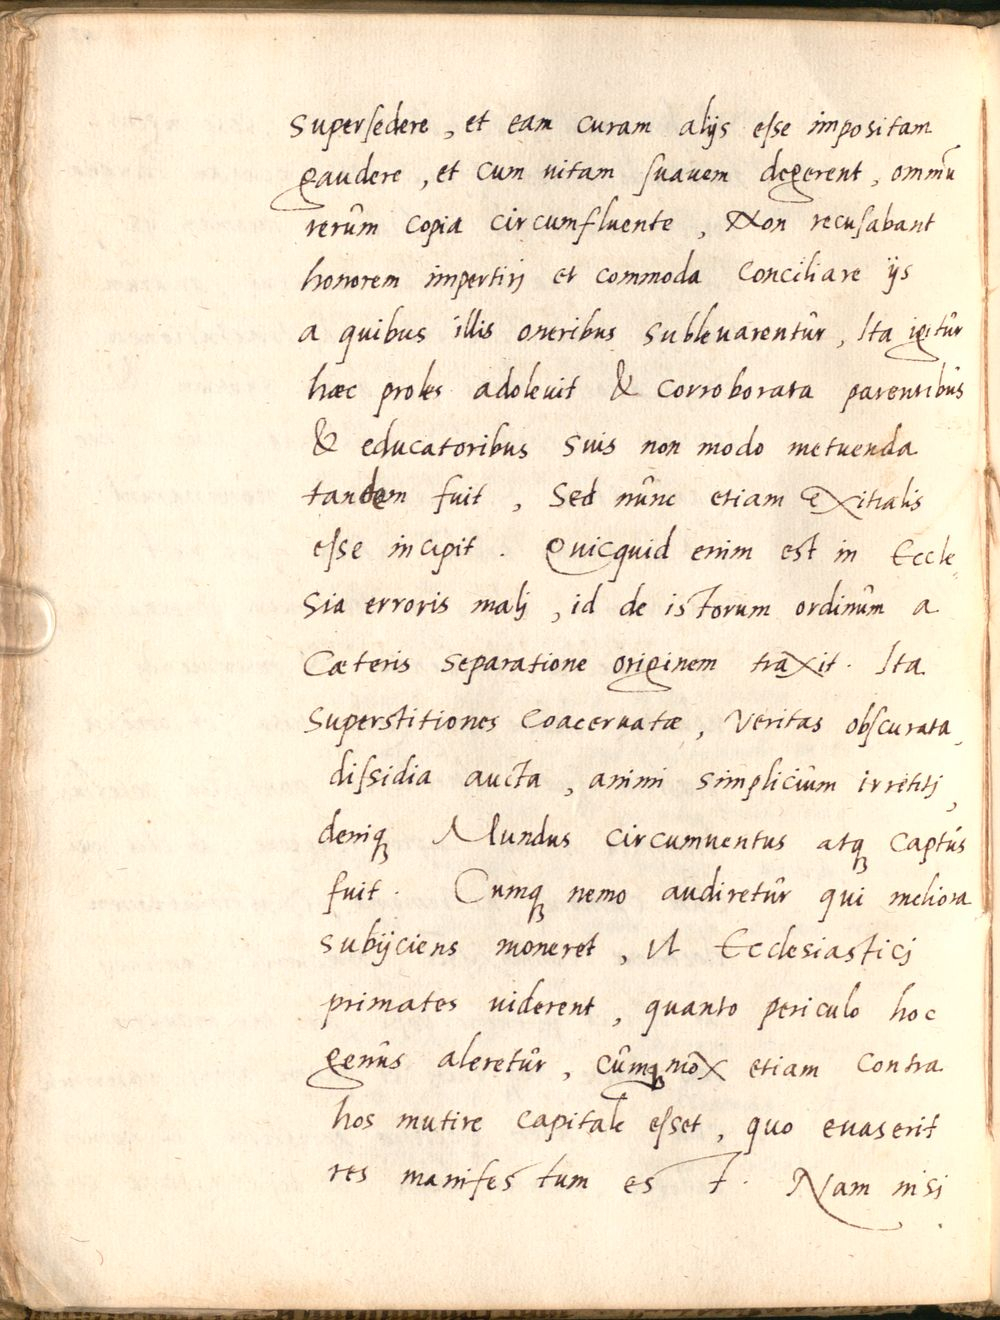 supersedere, et eam curam alijs esse impositam
gaudere, et cum uitam suauem degerent, omniũ
rerûm copia circumfluente, Non recusabant
honorem impertirj et commoda Conciliare ijs
a quibus illis oneribus subleuarentûr, Ita igitûr
hæc proles adoleuit & corroborata parentibûs
& educatoribus suis non modo metuenda
tandem fuit, Sed nûnc etiam exitialis
esse incipit. Quicquid enim est in Eccle-
sia erroris malj, id de istorum ordinûm a
Cæteris separatione originem traxit. Ita
superstitiones coaceruatæ, Veritas obscurata,
dissidia aucta, animi simpliciûm irretitj,
deniq3 Mundus circumuentus atq3 captûs
fuit. Cumq3 nemo audiretûr qui meliora
subijciens moneret, Vt Ecclesiasticj
primates uiderent, quanto periculo hoc
genûs aleretûr, Cûmq3 mox etiam contra
hos mutire capitale esset, quo euaserit
res manifestum est. Nam nisi